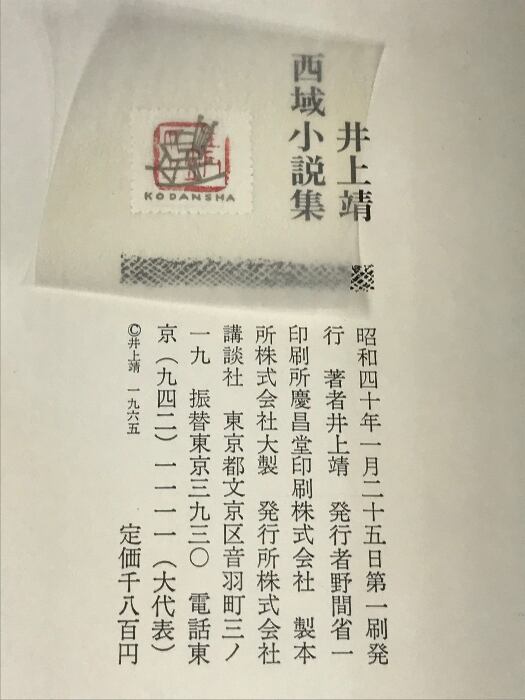 井上靖
西域小説集
KODANSHA
昭和四十年一月二十五日第一刷発
行　著者井上靖　発行者野間省一
印刷所慶昌堂印刷株式会社　製本
所株式会社大製　発行所株式会社
講談社　東京都文京区音羽町三ノ
一九　振替東京三九三〇　電話東
京（九四二）一一一一（大代表）
定価千八百円
©井上靖 一九六五